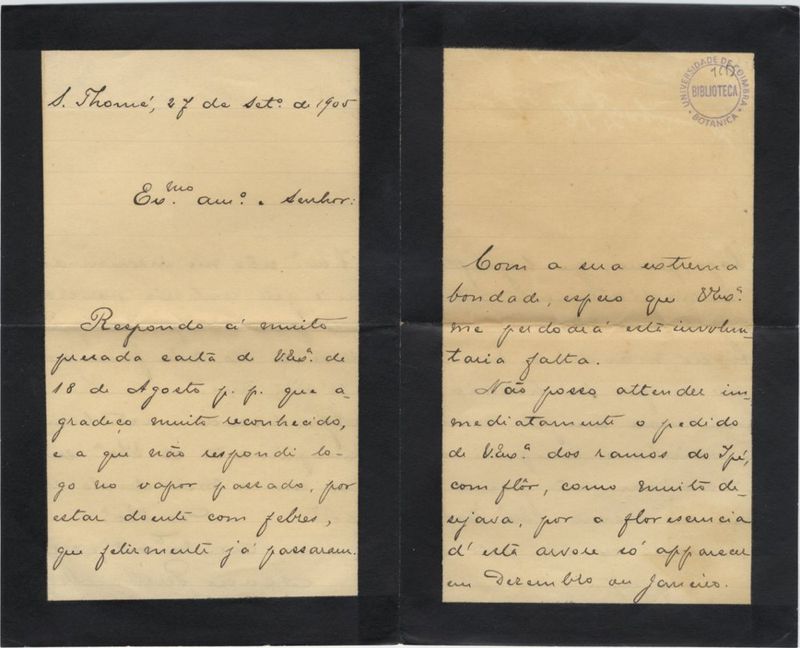 S. Thomé, 27 de Set.º de 1905
Ex.mo am.º e Senhor:
Respondo á muito
presada carta de V.Ex.ª de
18 de Agosto p. p. que a-
gradeço muito reconhecido,
e a que não respondi lo-
go no vapor passado, por
estar doente com febres,
que felizmente já passaram.
UNIVERSIDADE DE COIMBRA
BIBLIOTECA
BOTANICA
Com a sua extrema
bondade, espero que V.Ex.ª
me perdoará esta involun-
taria falta.
Não posso attender im-
mediatamente o pedido
de V.Ex.ª dos ramos do Ipé,
com flôr, como muito de-
sejava, por a florescencia
d'esta arvore só apparecer
em Dezembro ou Janeiro.